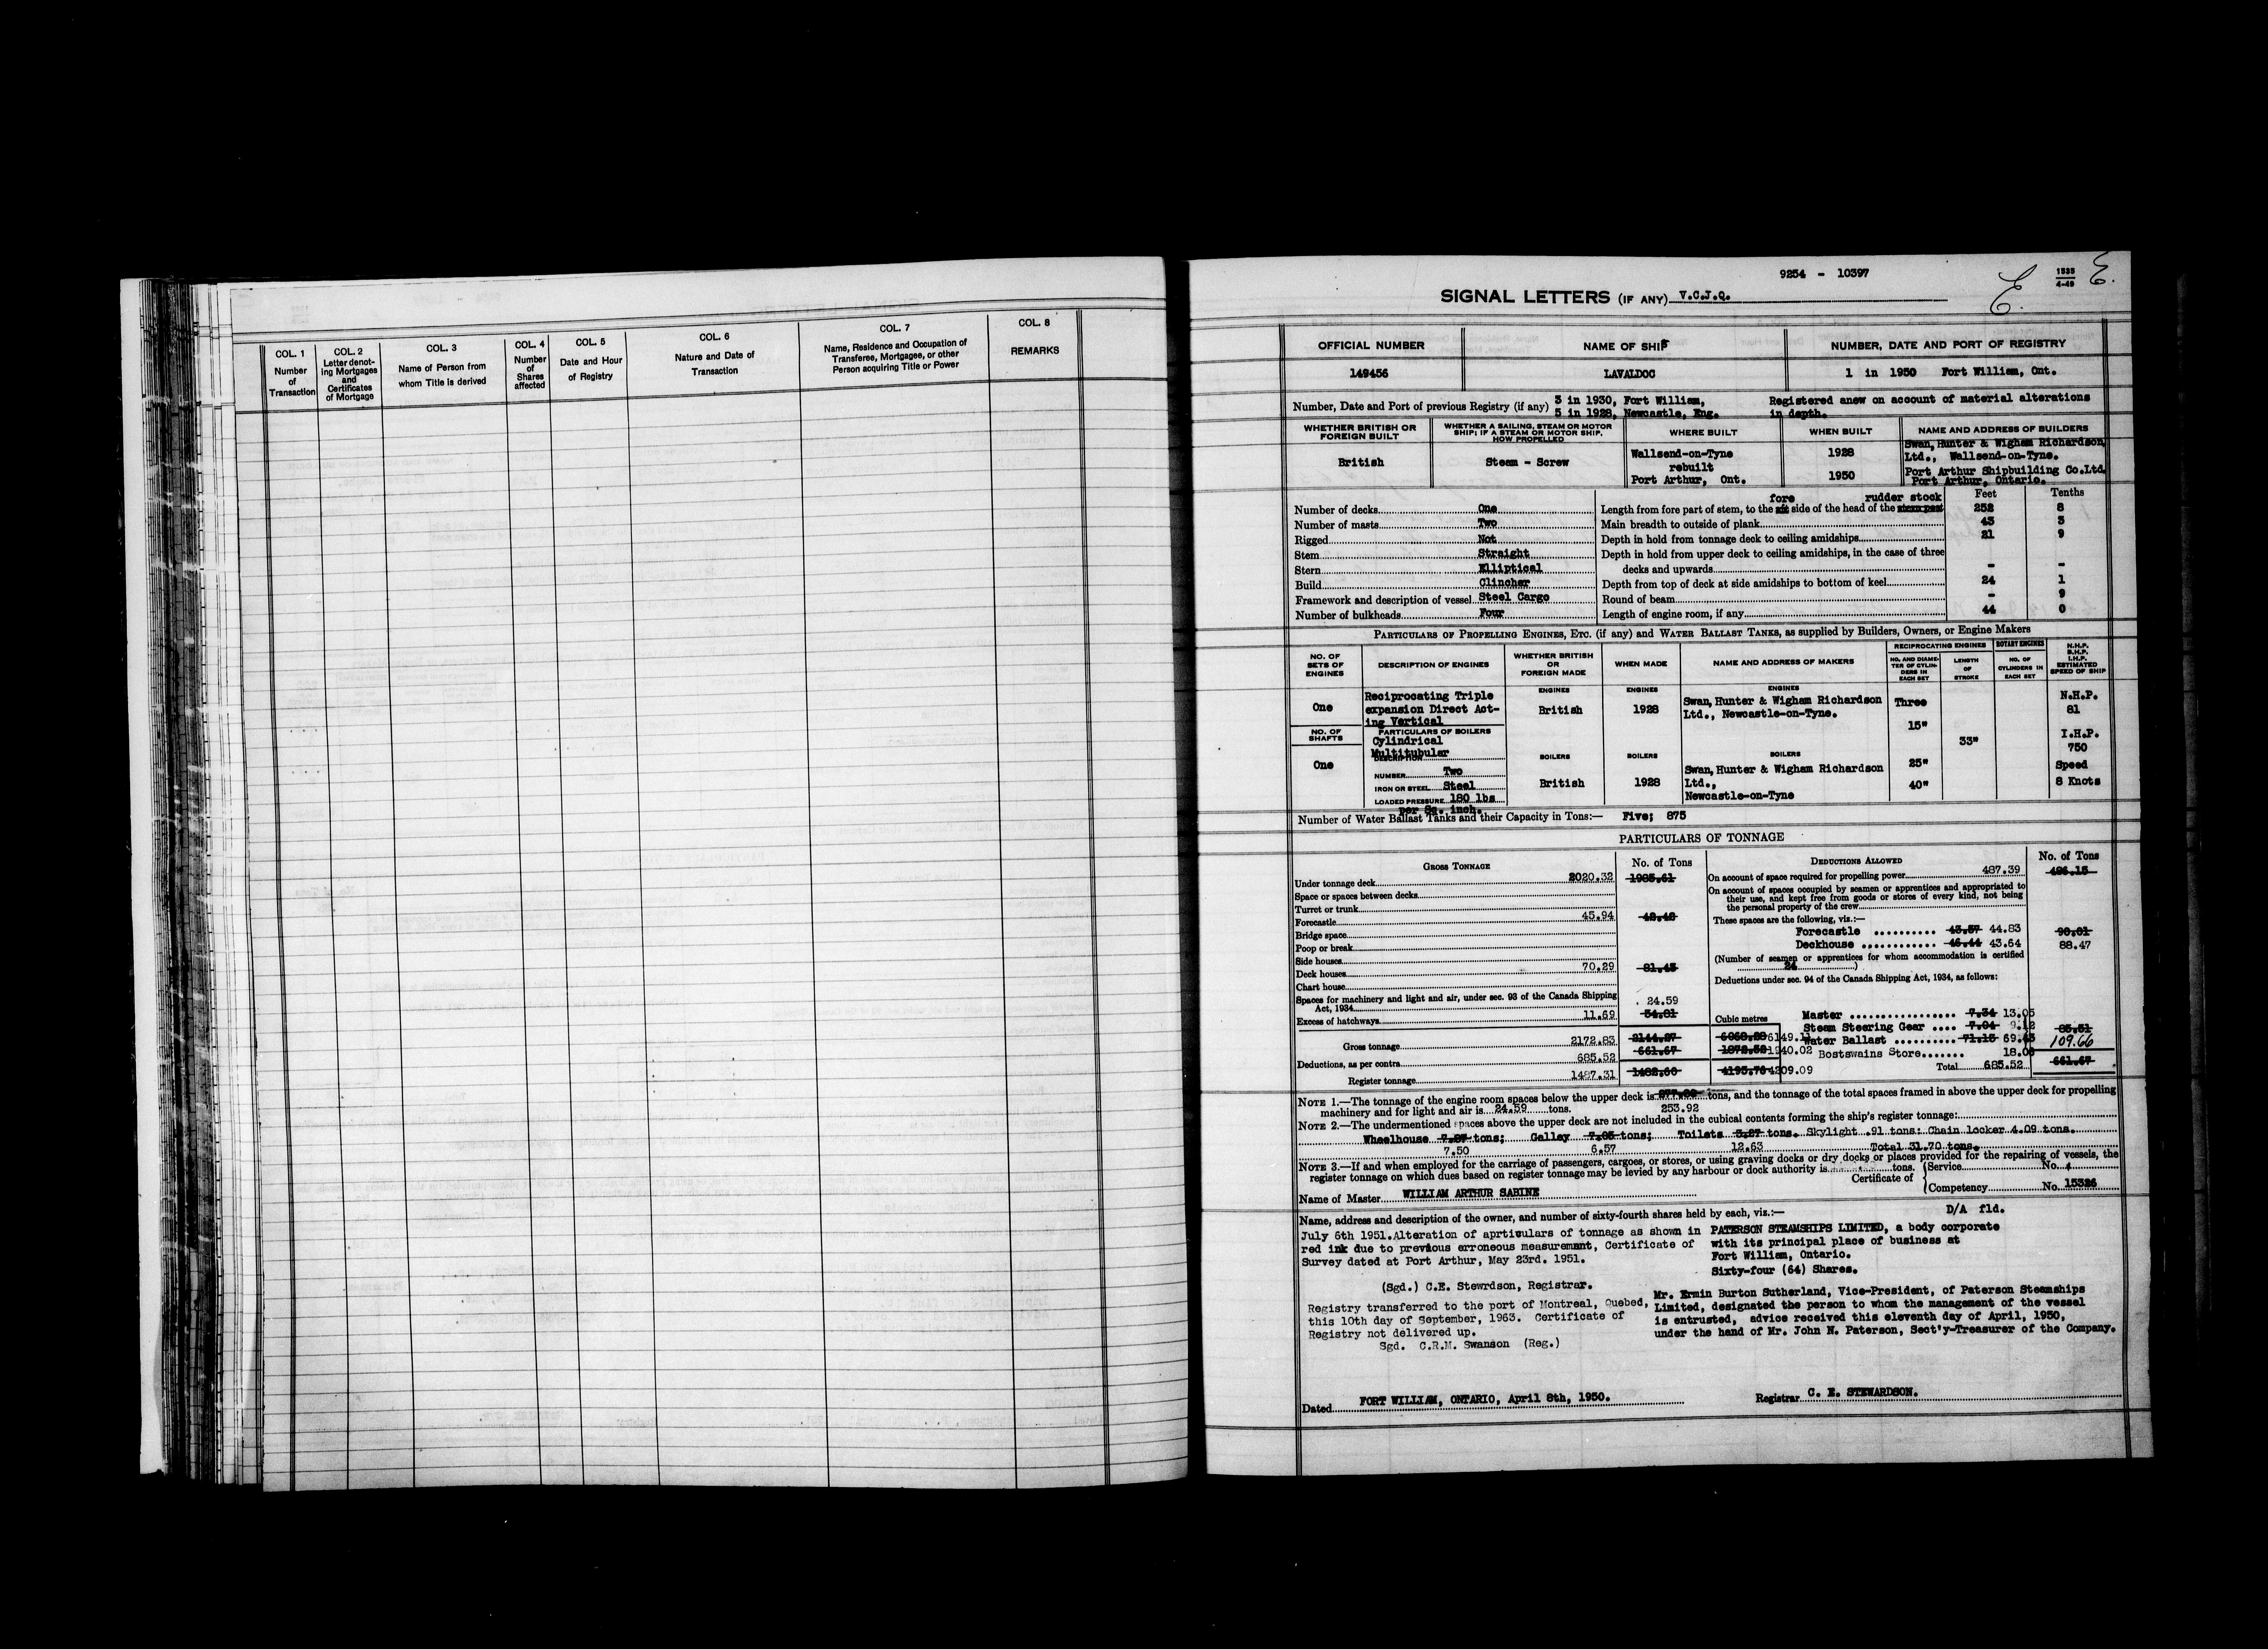 COL. 1
Number
of
Transaction
COL. 2
Letter denot-
ing Mortgages
and
Certificates
of Mortgage
COL. 3
Name of Person from
whom Title is derived
COL. 4
Number
of
Shares
affected
COL. 5
Date and Hour
of Registry
COL. 6
Nature and Date of
Transaction
COL. 7
Name, Residence and Occupation of
Transferee, Mortgagee, or other
Person acquiring Title or Power
COL. 8
REMARKS
9254 - 10397
1535
4-49
E.
E.
SIGNAL LETTERS (IF ANY) V.C.J.Q.
OFFICIAL NUMBER NAME OF SHIP NUMBER, DATE AND PORT OF REGISTRY
149456 LAVALDOC 1 in 1950 Fort William, Ont.
Number, Date and Port of previous Registry (if any) 3 in 1930, Fort William, Registered anew on account of material alterations
5 in 1928, Newcastle, Eng. in depth.
WHETHER BRITISH OR
FOREIGN BUILT
WHETHER A SAILING, STEAM OR MOTOR
SHIP; IF A STEAM OR MOTOR SHIP,
HOW PROPELLED
WHERE BUILT
WHEN BUILT
NAME AND ADDRESS OF BUILDERS
British
Steam - Screw
Wallsend-on-Tyne
rebuilt
Port Arthur, Ont.
1928
1950
Swan, Hunter & Wigham Richardson,
Ltd., Wallsend-on-Tyne.
Port Arthur Shipbuilding Co.Ltd.
Port Arthur, Ontario.
Number of decks One
Number of masts Two
Rigged Not
Stem Straight
Stern Elliptical
Build Clincher
Framework and description of vessel Steel Cargo
Number of bulkheads Four
fore rudder stock Feet Tenths
Length from fore part of stem, to the aft side of the head of the stern post 252 8
Main breadth to outside of plank 43 3
Depth in hold from tonnage deck to ceiling amidships 21 9
Depth in hold from upper deck to ceiling amidships, in the case of three
decks and upwards - -
Depth from top of deck at side amidships to bottom of keel 24 1
Round of beam - 9
Length of engine room, if any 44 0
PARTICULARS OF PROPELLING ENGINES, ETC. (if any) and WATER BALLAST TANKS, as supplied by Builders, Owners, or Engine Makers
NO. OF
SETS OF
ENGINES
DESCRIPTION OF ENGINES
WHETHER BRITISH
OR
FOREIGN MADE
WHEN MADE
NAME AND ADDRESS OF MAKERS
RECIPROCATING ENGINES
NO. AND DIAME-
TER OF CYLIN-
DERS IN
EACH SET
LENGTH
OF
STROKE
ROTARY ENGINES
NO. OF
CYLINDERS IN
EACH SET
N.H.P.
B.H.P.
I.H.P.
ESTIMATED
SPEED OF SHIP
One
Reciprocating Triple
expansion Direct Act-
ing Vertical
ENGINES
British
ENGINES
1928
ENGINES
Swan, Hunter & Wigham Richardson
Ltd., Newcastle-on-Tyne.
Three
15"
25"
40"
33"
N.H.P.
81
I.H.P.
750
Speed
8 Knots
NO. OF
SHAFTS
One
PARTICULARS OF BOILERS
Cylindrical
Multitubular
DESCRIPTION
NUMBER Two
IRON OR STEEL Steel
LOADED PRESSURE 180 lbs
per Sq. inch.
BOILERS
British
BOILERS
1928
BOILERS
Swan, Hunter & Wigham Richardson
Ltd.,
Newcastle-on-Tyne
Number of Water Ballast Tanks and their Capacity in Tons:— Five; 875
PARTICULARS OF TONNAGE
GROSS TONNAGE No. of Tons
Under tonnage deck 2020.32 1985.61
Space or spaces between decks
Turret or trunk
Forecastle 45.94 42.42
Bridge space
Poop or break
Side houses
Deck houses 70.29 81.43
Chart house
Spaces for machinery and light and air, under sec. 93 of the Canada Shipping
Act, 1934 24.59
Excess of hatchways 11.69 34.81
Cubic metres
Gross tonnage 2172.83 2144.27 6068.28 6149.11
Deductions, as per contra 685.52 661.67 1872.52 1940.02
Register tonnage 1487.31 1482.60 4195.76 4209.09
DEDUCTIONS ALLOWED No. of Tons
On account of space required for propelling power 487.39 486.15
On account of spaces occupied by seamen or apprentices and appropriated to
their use, and kept free from goods or stores of every kind, not being
the personal property of the crew
These spaces are the following, viz.:—
Forecastle 43.57 44.83 90.01
Deckhouse 46.44 43.64 88.47
(Number of seamen or apprentices for whom accommodation is certified
24 )
Deductions under sec. 94 of the Canada Shipping Act, 1934, as follows:
Master 7.34 13.05
Steam Steering Gear 7.04 9.12 85.51
Water Ballast 71.13 69.43 109.66
Bostswains Store 18.06
Total 685.52 661.67
NOTE 1.—The tonnage of the engine room spaces below the upper deck is tons, and the tonnage of the total spaces framed in above the upper deck for propelling
machinery and for light and air is 24.59 tons. 253.92
NOTE 2.—The undermentioned spaces above the upper deck are not included in the cubical contents forming the ship's register tonnage:
Wheelhouse 7.87 tons; Galley 7.85 tons; Toilets 3.27 tons. Skylight .91 tons: Chain locker 4.09 tons.
7.50 6.57 12.63 Total 31.70 tons.
NOTE 3.—If and when employed for the carriage of passengers, cargoes, or stores, or using graving docks or dry docks or places provided for the repairing of vessels, the
register tonnage on which dues based on register tonnage may be levied by any harbour or dock authority is tons.
Name of Master WILLIAM ARTHUR SABINE
Certificate of
Service No.
Competency No. 15326
Name, address and description of the owner, and number of sixty-fourth shares held by each, viz.:—
July 6th 1951.Alteration of aprticulars of tonnage as shown in
red ink due to previous erroneous measuremant, Certificate of
Survey dated at Port Arthur, May 23rd. 1951.
(Sgd.) C.E. Stewrdson, Registrar.
Registry transferred to the port of Montreal, Quebed,
this 10th day of September, 1963. Certificate of
Registry not delivered up.
Sgd. C.R.M. Swanson (Reg.)
D/A fld.
PATERSON STEAMSHIPS LIMITED, a body corporate
with its principal place of business at
Fort William, Ontario.
Sixty-four (64) Shares.
Mr. Ermin Burton Sutherland, Vice-President, of Paterson Steamships
Limited, designated the person to whom the management of the vessel
is entrusted, advice received this eleventh day of April, 1950,
under the hand of Mr. John N. Paterson, Sect'y-Treasurer of the Company.
Dated FORT WILLIAM, ONTARIO, April 8th, 1950.
Registrar C. E. STEWARDSON.